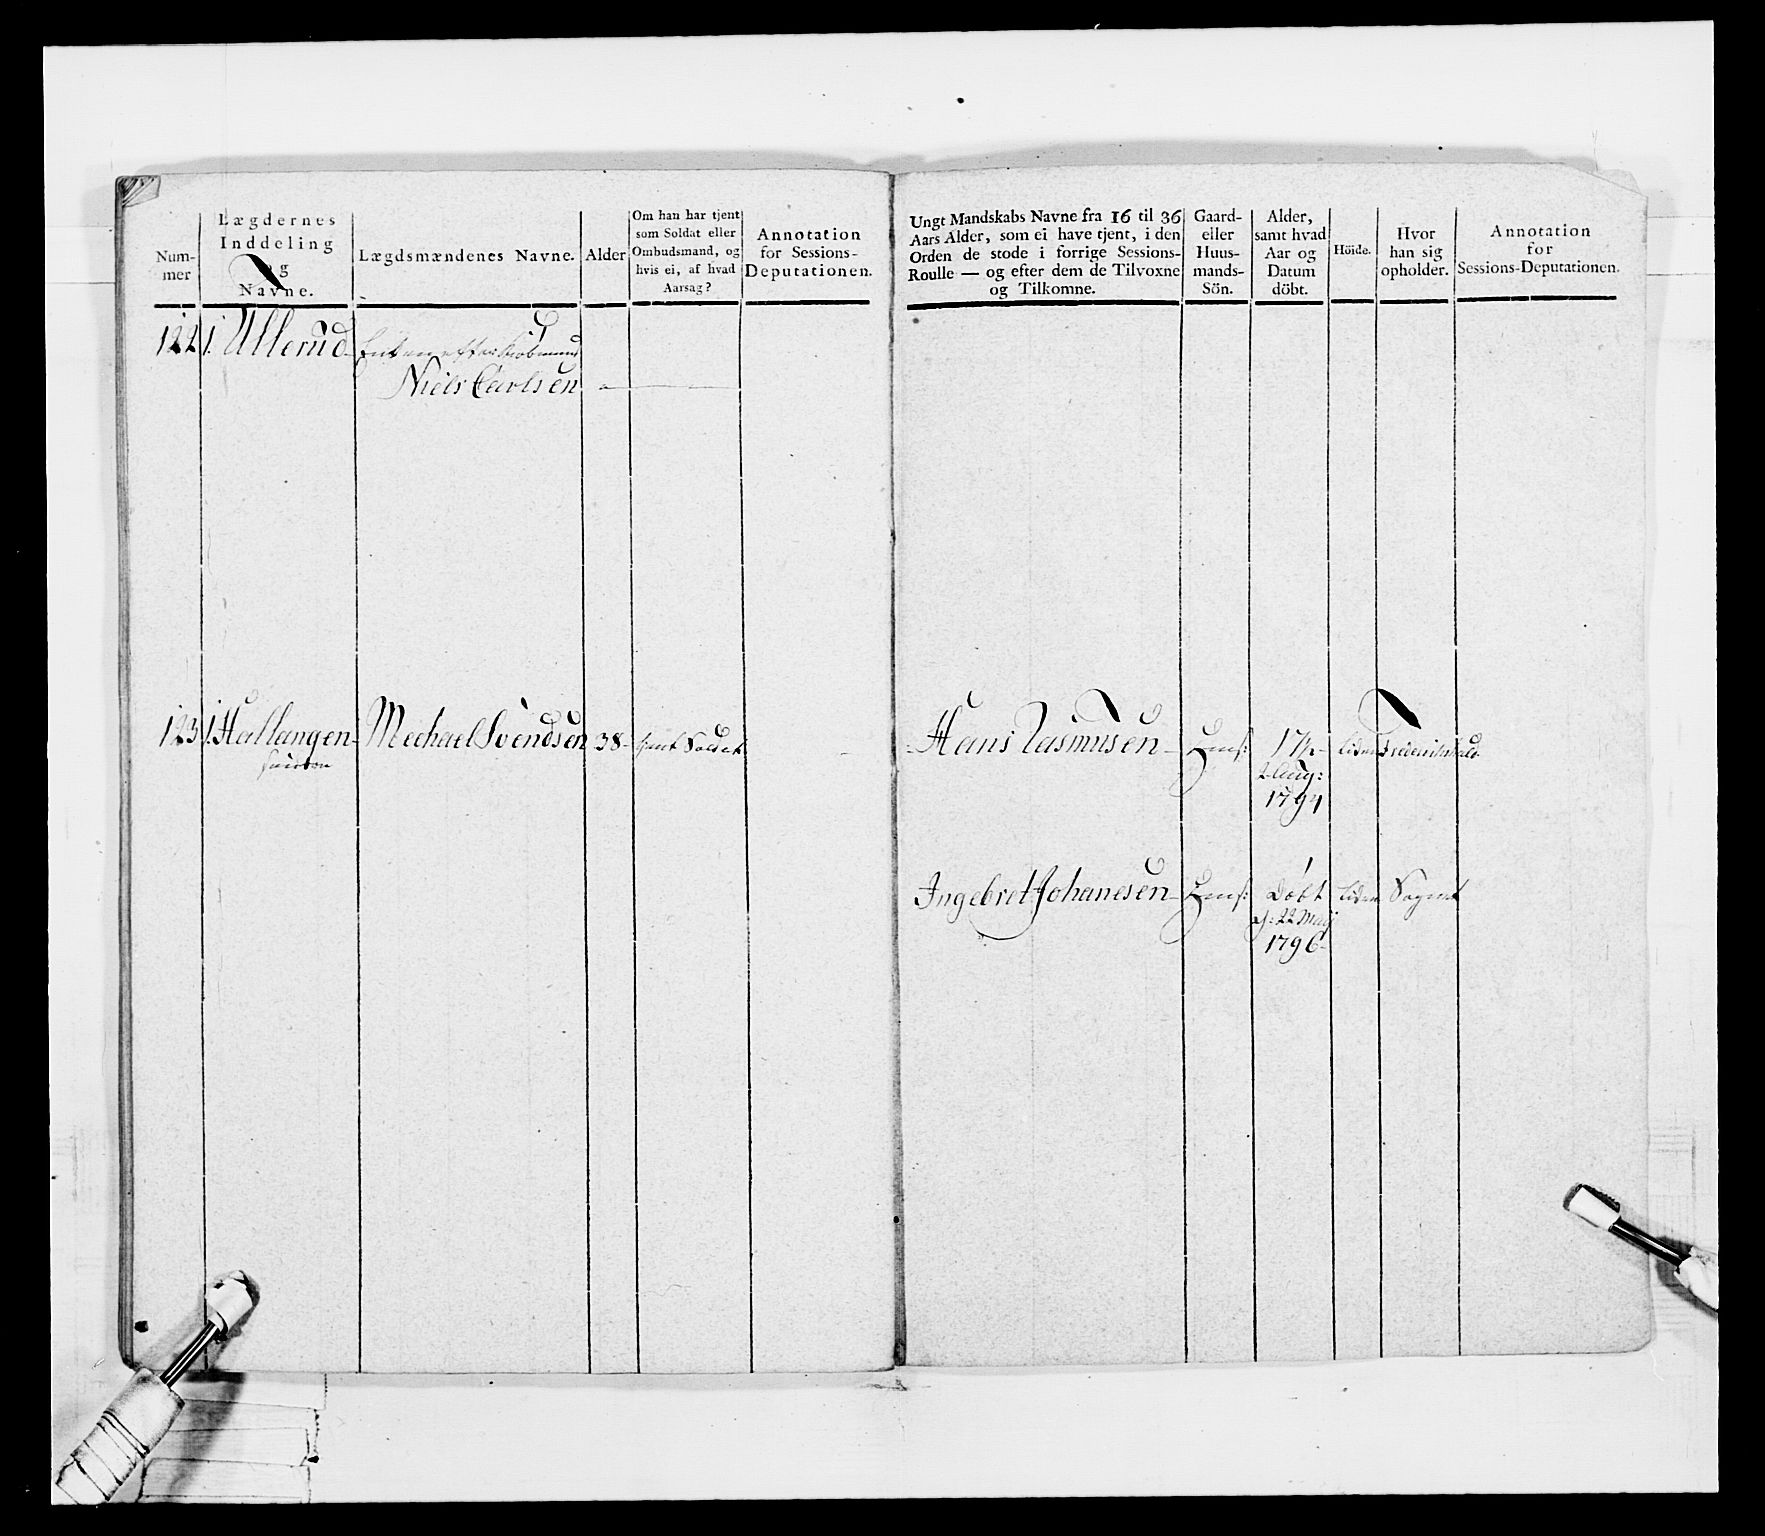 Num-
mer
Lægdernes
Inddeling
og
Navne.
Lægdsmændenes Navne.
Alder
Om han har tjent
som Soldat eller
Ombudsmand, og
hvis ei, af hvad
Aarsag?
Annotation
for Sessions-
Deputationen.
122 1. Ullerud
Enken efter Kiøbmand
Niels Carlsen
123 1. Hallangen Mechael Svendsen 38 tient Soldat
Ungt Mandskabs Navne fra 16 til 36
Aars Alder, som ei have tjent, i den
Orden de stode i forrige Sessions-
Roulle — og efter dem de Tilvoxne
og Tilkomne.
Gaard-
eller
Huus-
mands-
Sön.
Alder,
samt hvad
Aar og
Datum
döbt.
Höide.
Hvor
han sig
opholder.
Annotation
for
Sessions-Deputationen.
Hans Rasmusen Hmsf: 17½ liden Fredrichshald
2 Aug:
1794
Ingebret Johanesen Hmsf: Døbt liden Sognet
d: 22 Maij
1796